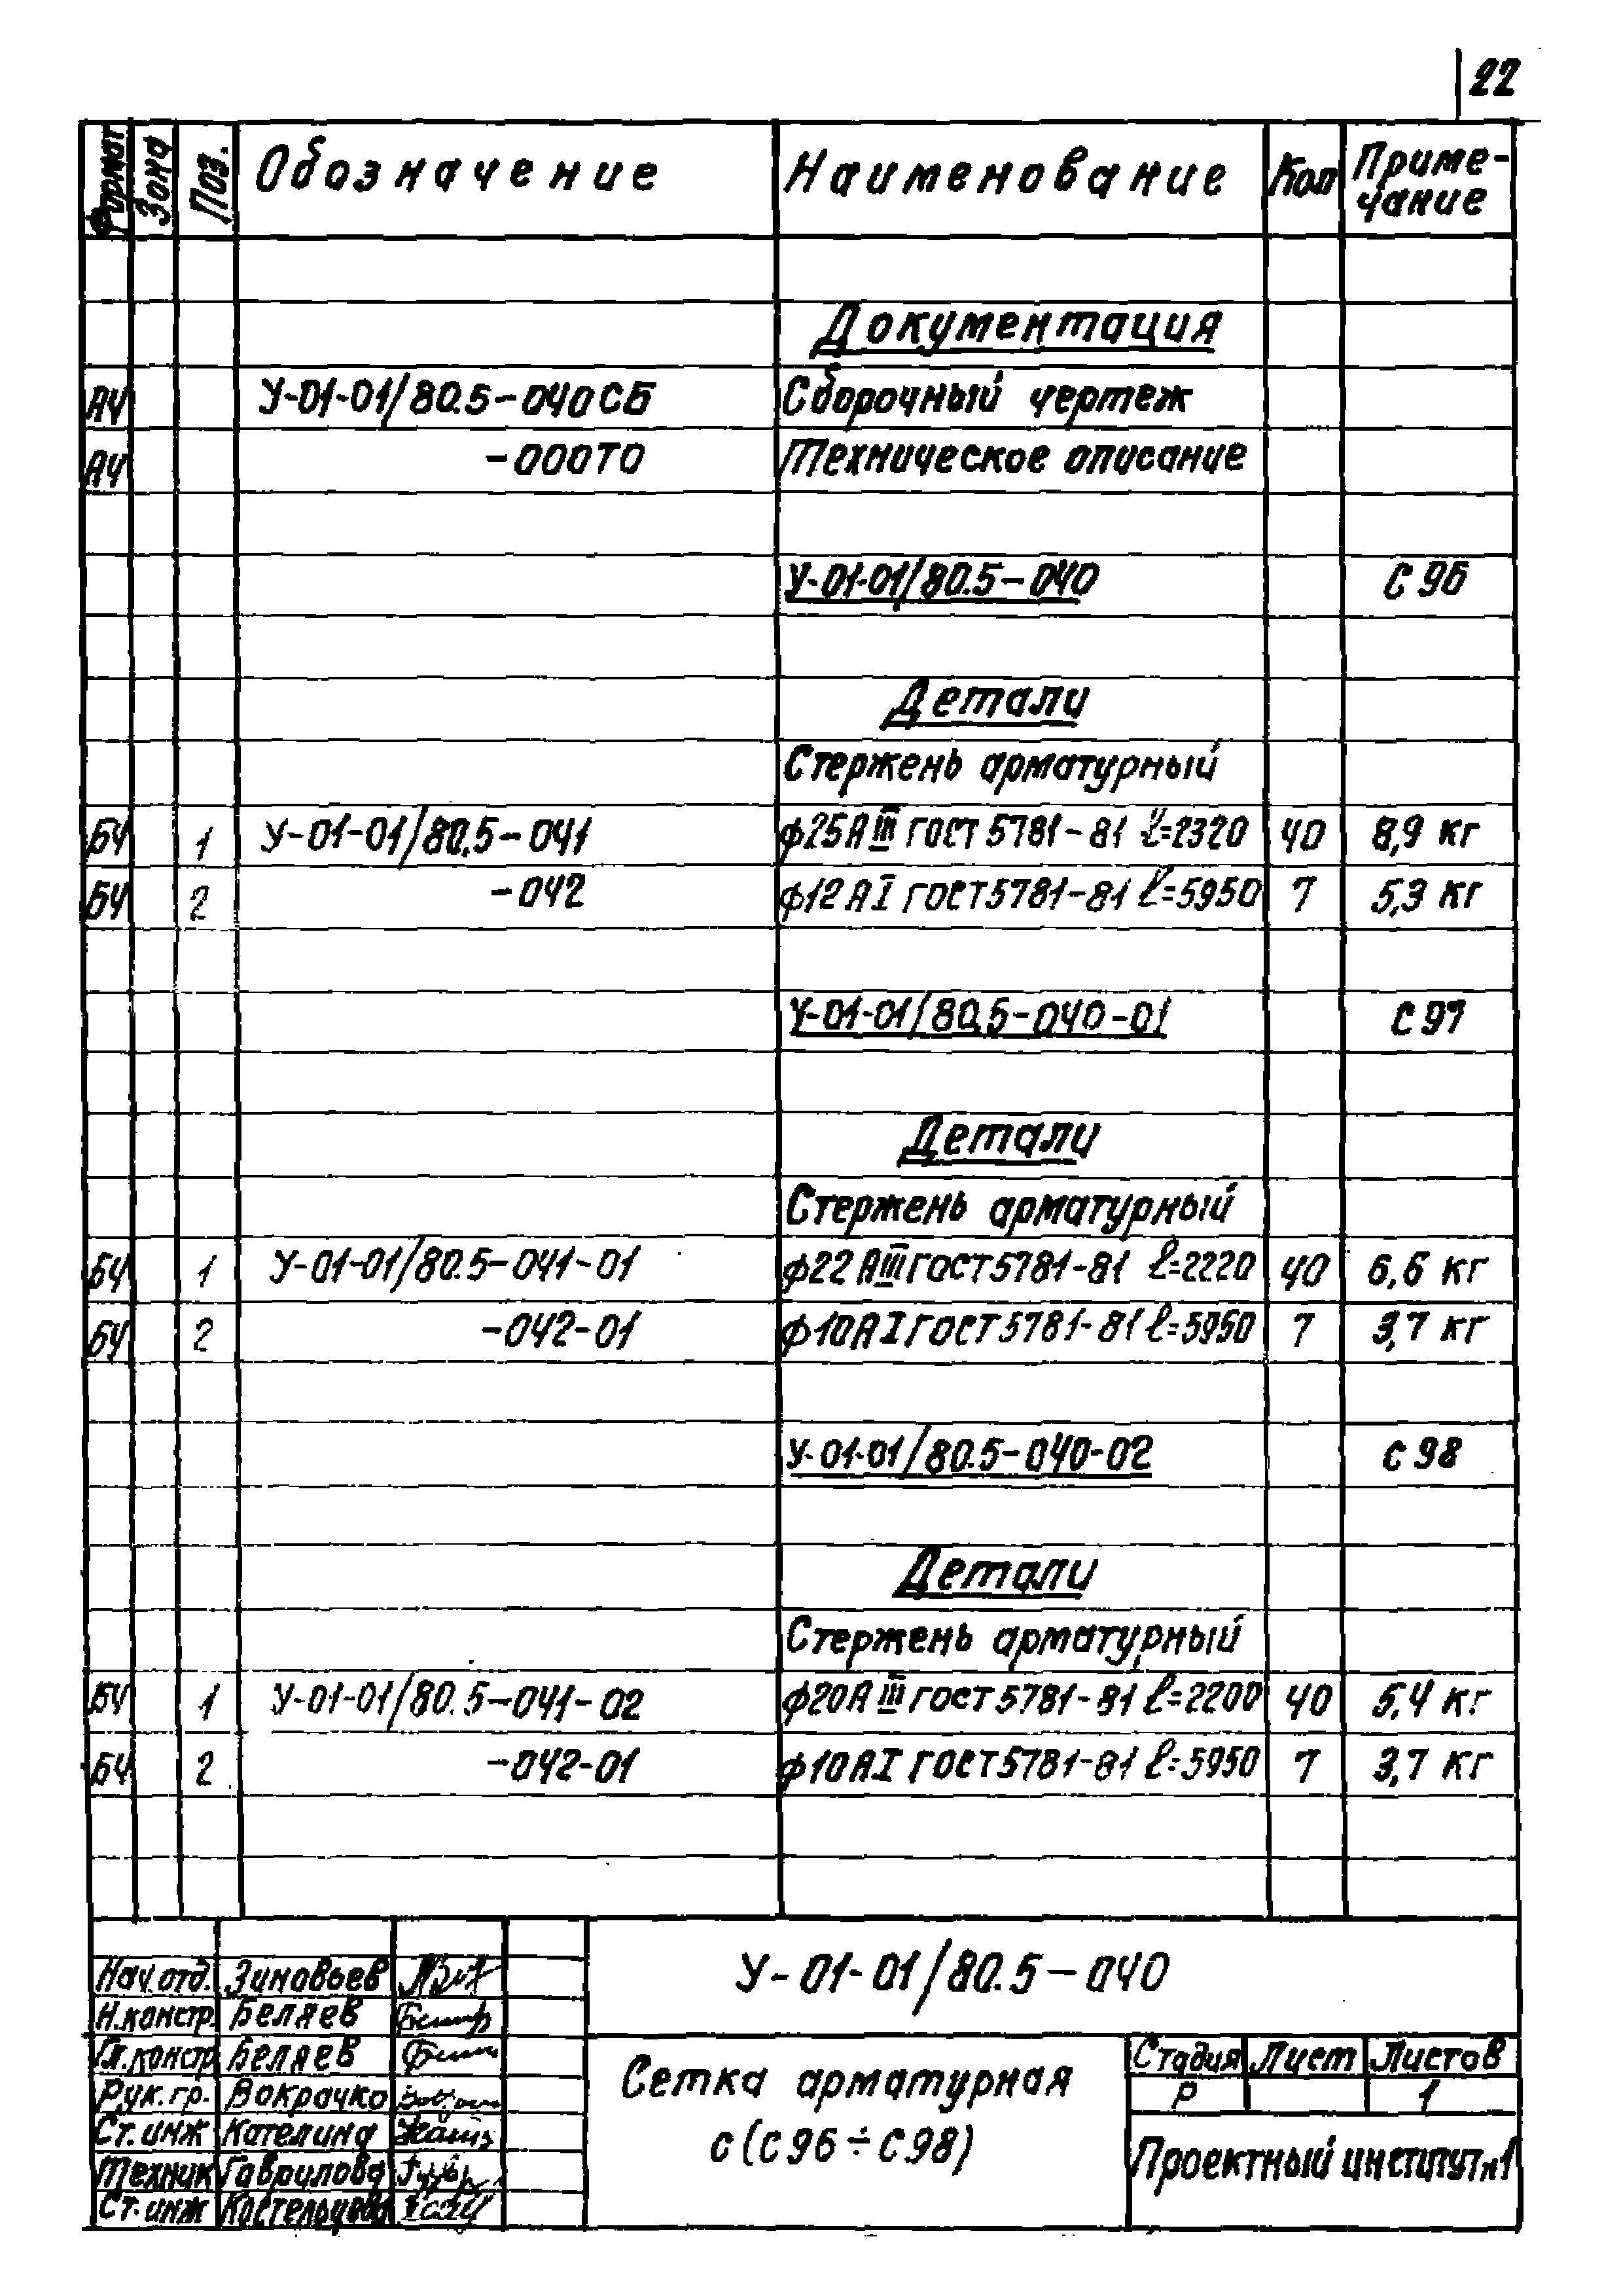 22
Формат Зона Поз. Обозначение Наименование Кол Приме-
чание
Документация
А4 У-01-01/80.5-040СБ Сборочный чертеж
А4 -000ТО Техническое описание
У-01-01/80.5-040 С 96
Детали
Стержень арматурный
БЧ 1 У-01-01/80.5-041 ф25АIII ГОСТ 5781-81 ℓ=2320 40 8,9 кг
БЧ 2 -042 ф12АI ГОСТ 5781-81 ℓ=5950 7 5,3 кг
У-01-01/80.5-040-01 С 97
Детали
Стержень арматурный
БЧ 1 У-01-01/80.5-041-01 ф22АIII ГОСТ 5781-81 ℓ=2220 40 6,6 кг
БЧ 2 -042-01 ф10АI ГОСТ 5781-81 ℓ=5950 7 3,7 кг
У-01-01/80.5-040-02 С 98
Детали
Стержень арматурный
БЧ 1 У-01-01/80.5-041-02 ф20АIII ГОСТ 5781-81 ℓ=2200 40 5,4 кг
БЧ 2 -042-01 ф10АI ГОСТ 5781-81 ℓ=5950 7 3,7 кг
У-01-01/80.5-040
Нач.отд. Зиновьев
Н.констр. Беляев
Гл.констр Беляев
Рук.гр. Вакрачко
Ст.инж Кателина
Техник Гаврилова
Ст.инж
Сетка арматурная
С (С 96 ÷ С 98)
Стадия Лист Листов
Р 1
Проектный институт №1